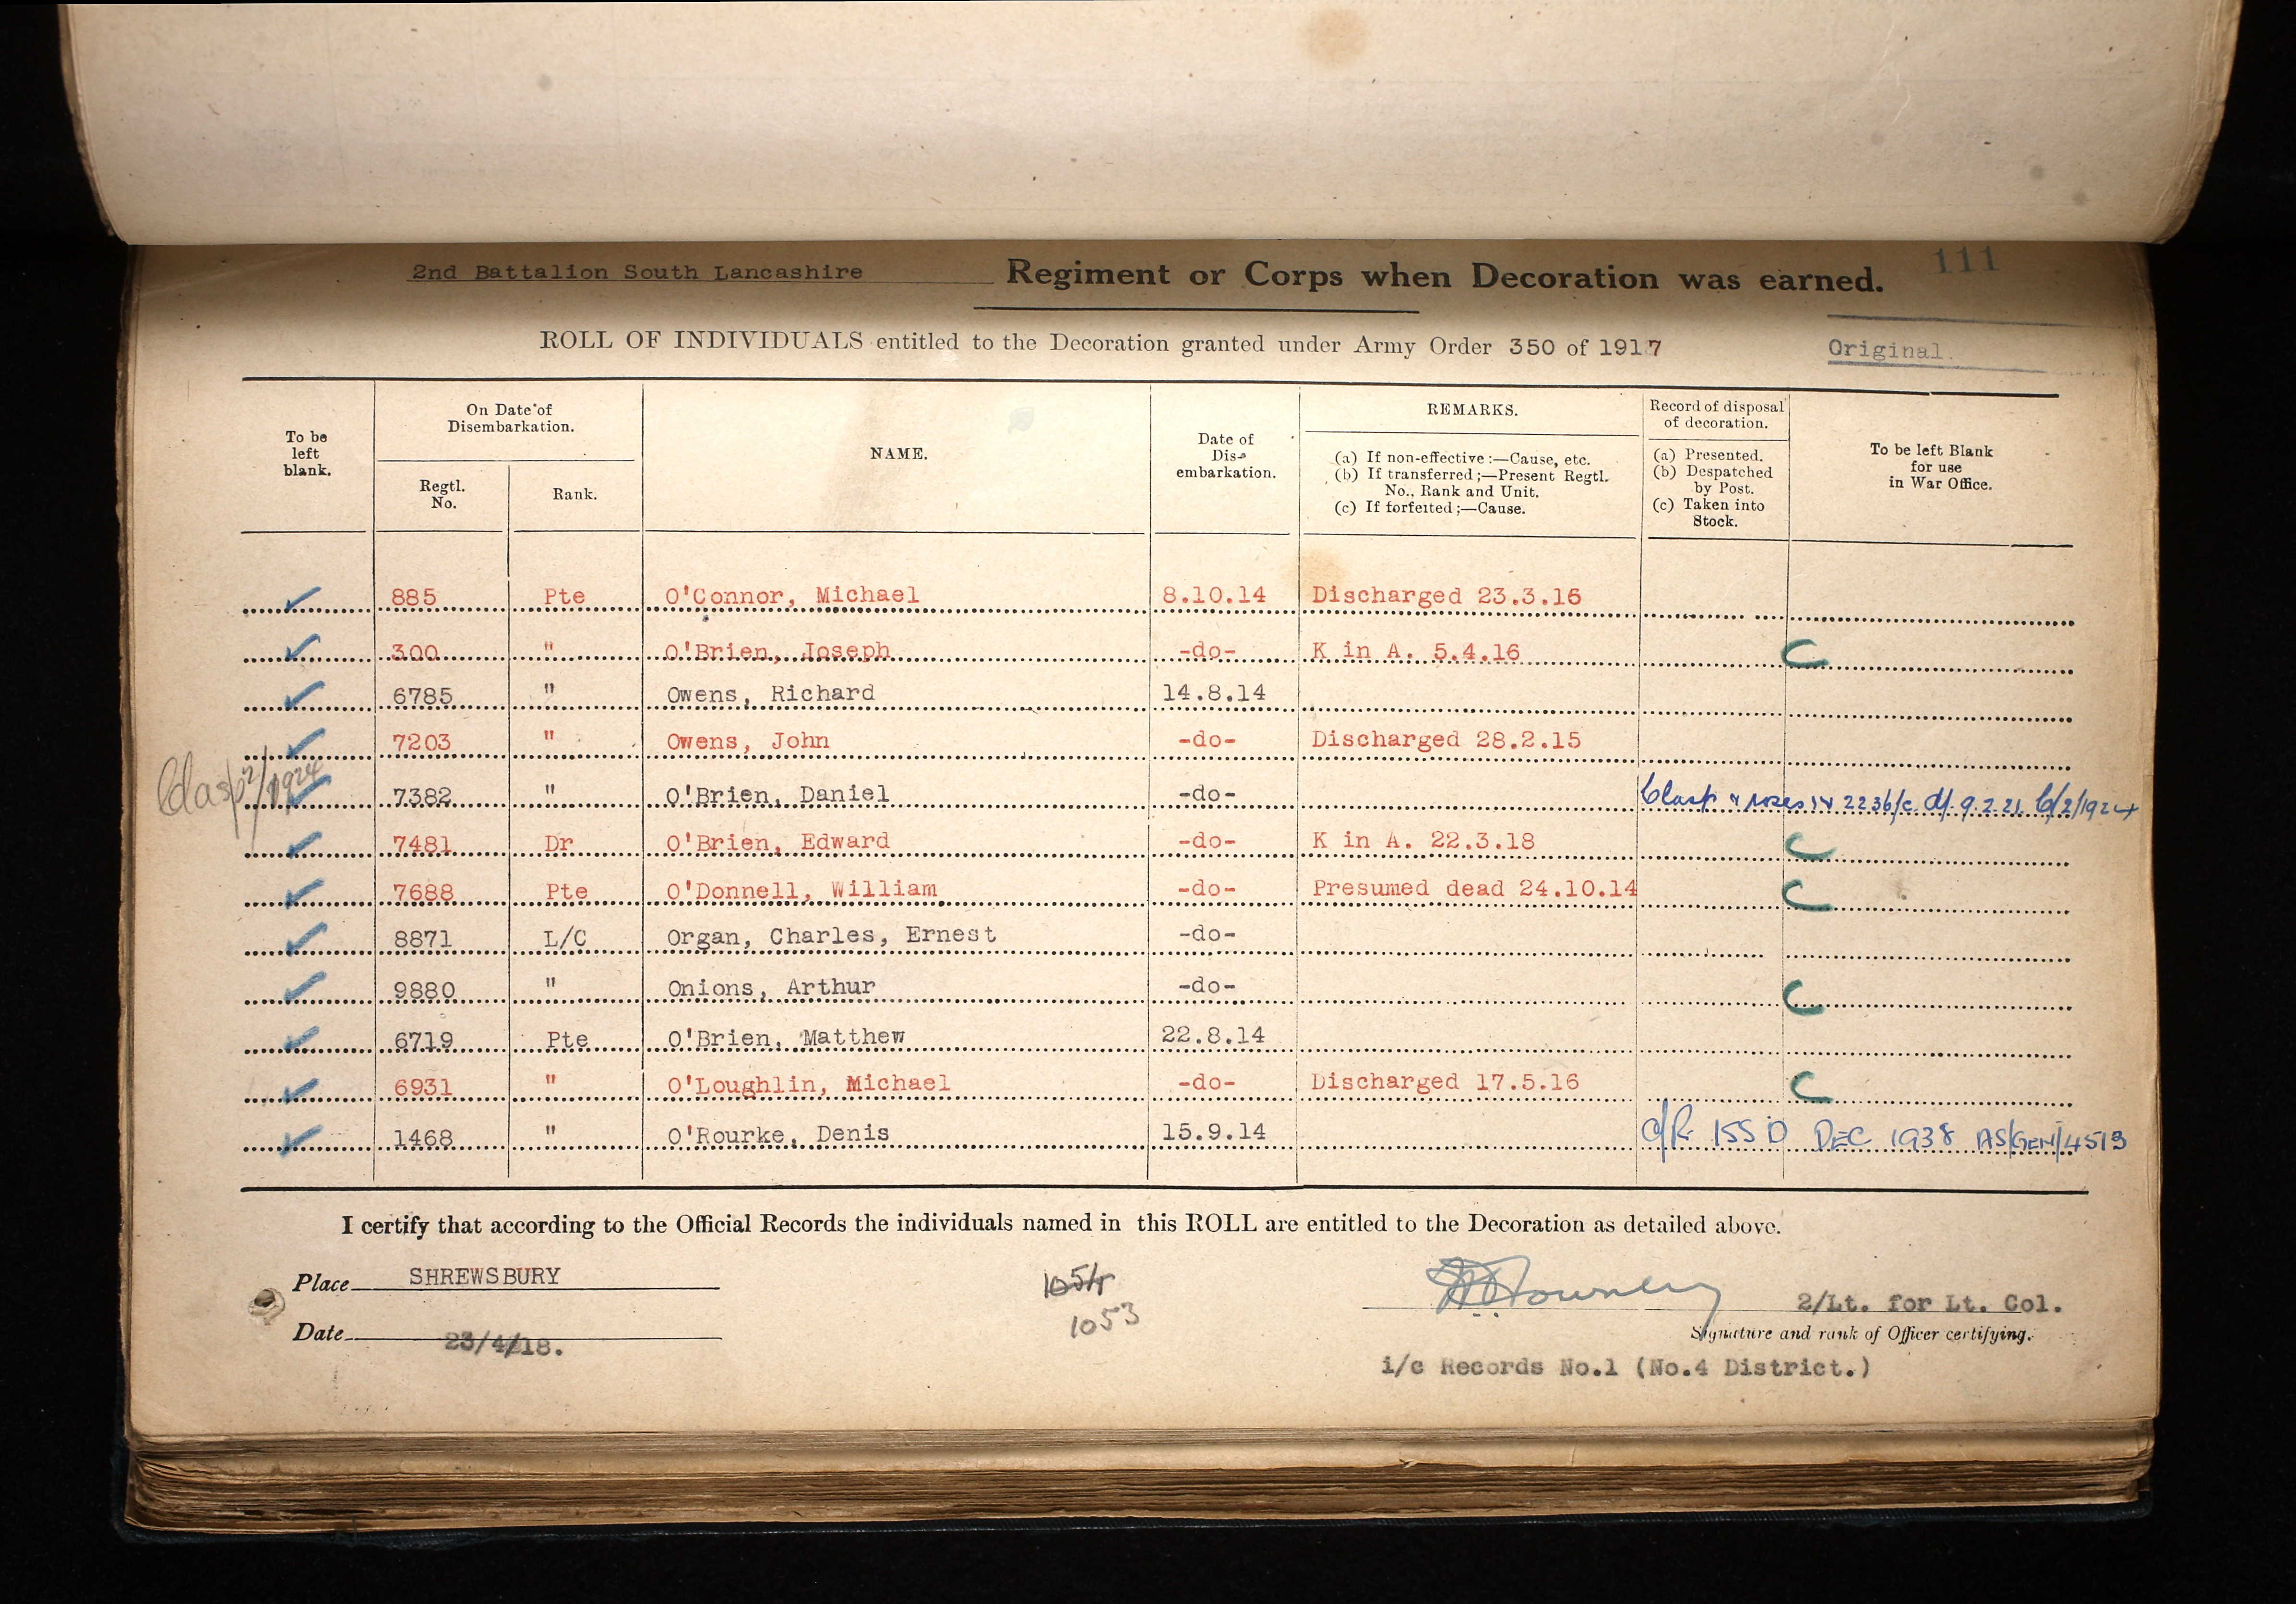 111
2nd Battalion South Lancashire Regiment or Corps when Decoration was earned.
ROLL OF INDIVIDUALS entitled to the Decoration granted under Army Order 350 of 1917
Original.
To be left blank.
On Date of Disembarkation.
Regtl. No.
Rank.
NAME.
Date of Dis-embarkation.
REMARKS.
(a) If non-effective:—Cause, etc.
(b) If transferred;—Present Regtl. No., Rank and Unit.
(c) If forfeited;—Cause.
Record of disposal of decoration.
(a) Presented.
(b) Despatched by Post.
(c) Taken into Stock.
To be left Blank for use in War Office.
885 Pte O'Connor, Michael 8.10.14 Discharged 23.3.16
300 " O'Brien, Joseph -do- K in A. 5.4.16 C
6785 " Owens, Richard 14.8.14
7203 " Owens, John -do- Discharged 28.2.15
Clasp 2/1924 7382 " O'Brien, Daniel -do- Clasp & roses IV 2236/c d/ 9.2.21. C/2/1924
7481 Dr O'Brien, Edward -do- K in A. 22.3.18 C
7688 Pte O'Donnell, William -do- Presumed dead 24.10.14 C
8871 L/C Organ, Charles, Ernest -do-
9880 " Onions, Arthur -do- C
6719 Pte O'Brien, Matthew 22.8.14
6931 " O'Loughlin, Michael -do- Discharged 17.5.16 C
1468 " O'Rourke, Denis 15.9.14 C/R ISSD DEC 1938 AS/GEN/4513
I certify that according to the Official Records the individuals named in this ROLL are entitled to the Decoration as detailed above.
Place SHREWSBURY
1054
2/Lt. for Lt. Col.
1053
Signature and rank of Officer certifying.
Date 23/4/18.
i/c Records No.1 (No.4 District.)